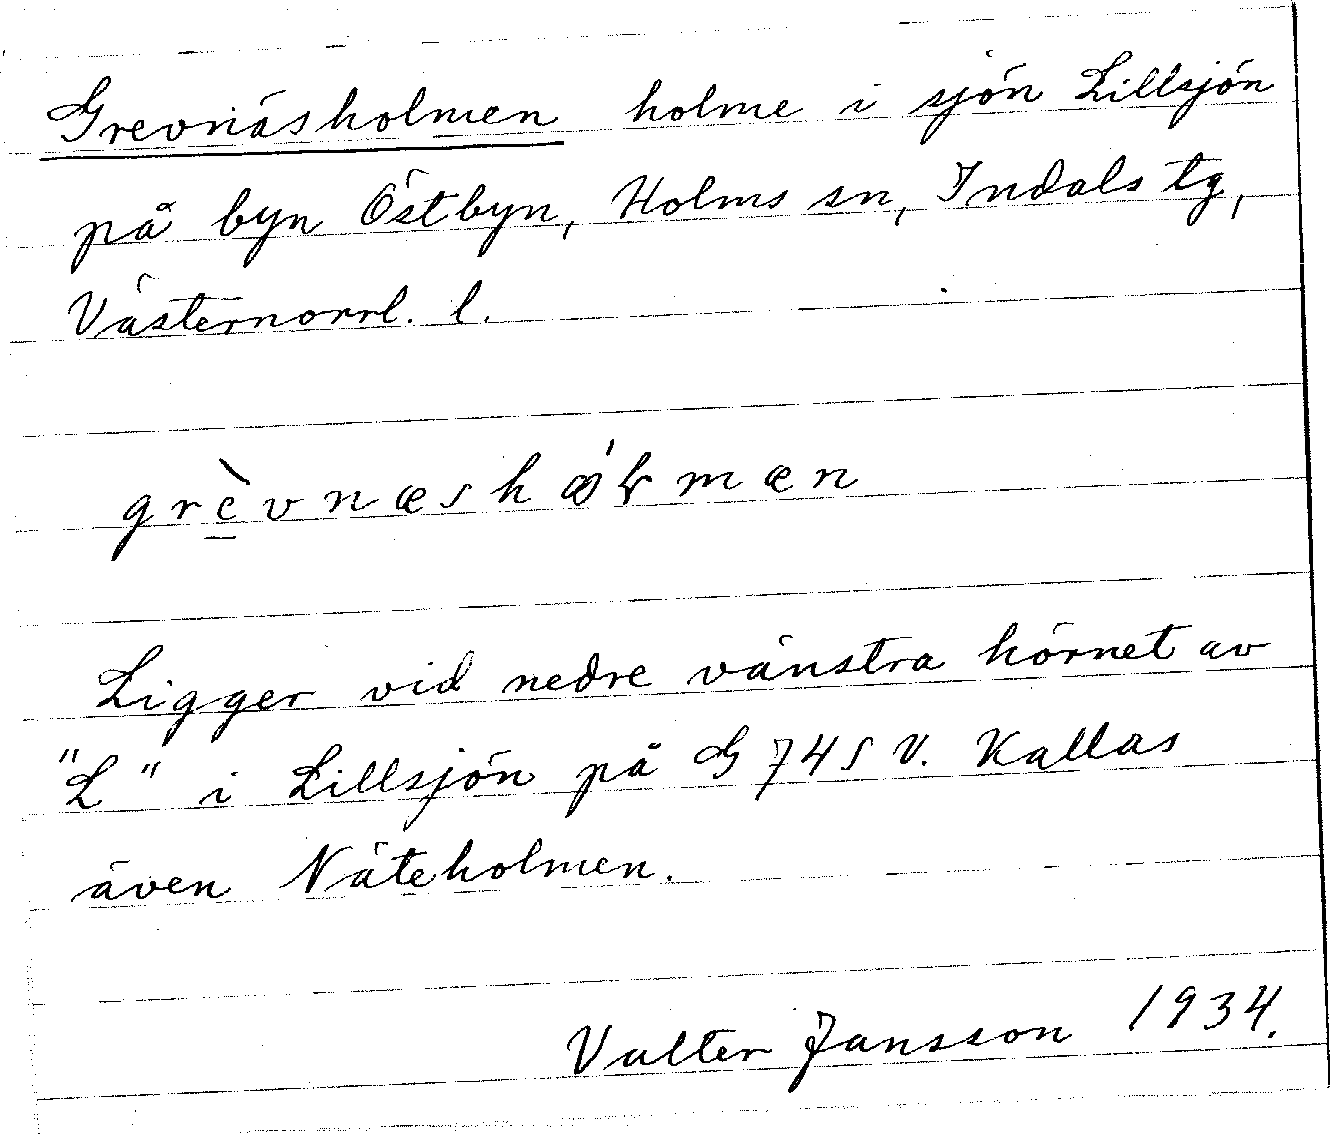 Grevnäsholmen holme i sjön Lillsjön
på byn Östbyn, Holms sn, Indals tg,
Västernorrl. l.
grèvnæshǿɽmæn
Ligger vid nedre vänstra hörnet av
"L" i Lillsjön på G 74 S V. Kallas
även Näteholmen.
Valter Jansson 1934.